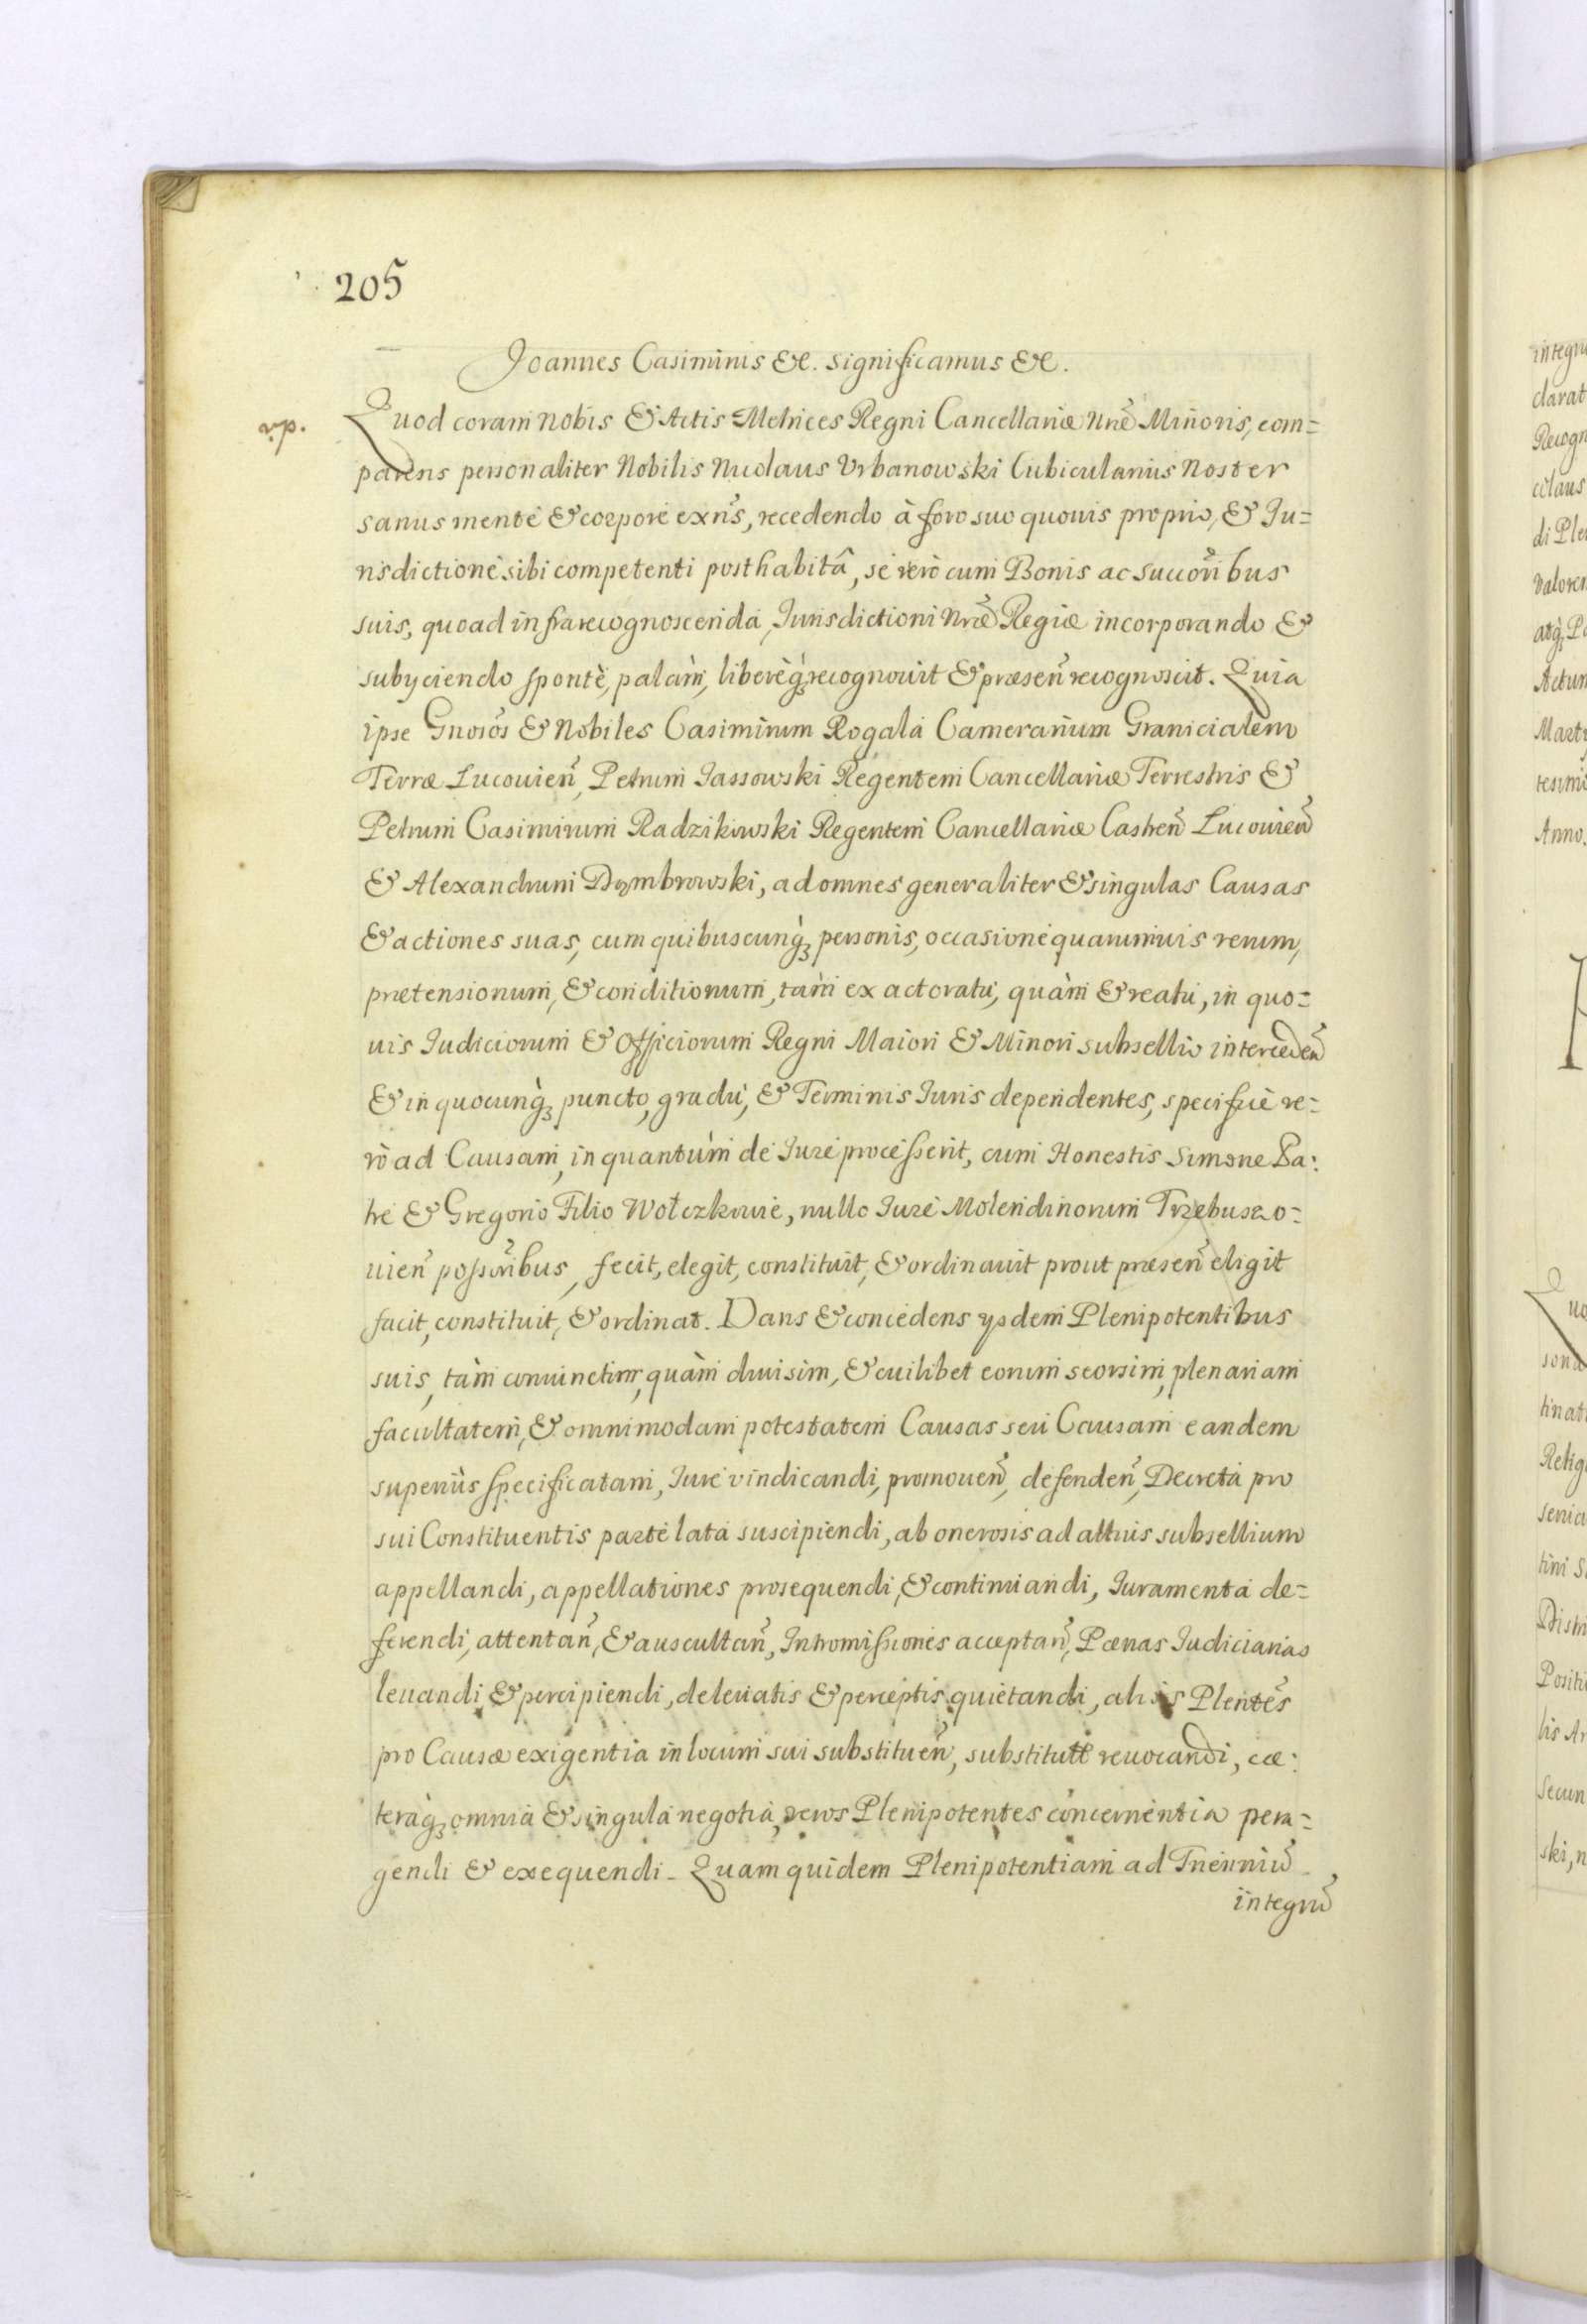 205
Joannes Casimirus &c. significamus &c.
vp.
Quod coram nobis & Actis Metrices Regni Cancellariæ Nrẽ Minoris, com=
parens personaliter Nobilis Nicolaus Urbanowski Cubicularius Noster
sanus mente & corpore exñs, recedendo à foro suo quouis proprio, & Ju=
risdictione sibi competenti posthabitâ, se verò cum Bonis ac Succoribus
suis, quoad infrarecognoscenda, Jurisdictioni Nræ Regiæ incorporando &
subyciendo spontè, palàm, liberèq; recognouit & præseñ recognoscit. Quia
ipse Gnosos & Nobiles Casimirum Rogala Camerarium Granicialem
Terræ Lucouieñ, Petrum Jassowski Regentem Cancellariæ Terrestris &
Petrum Casimirum Radzikowski Regentem Cancellariæ Castreñ Lucouieñ
& Alexandrum Dęmbrowski, ad omnes generaliter & singulas Causas
& actiones suas, cum quibuscunq; personis, occasione quarumuis rerum,
prætensionum, & conditionum, tàm ex actoratu, quàm & reatu, in quo=
uis Judiciorum & Officiorum Regni Maiori & Minori subsellio intercedeñ
& in quocunq; puncto, gradu, & Terminis Juris dependentes, specificè ve=
rò ad Causam, in quantùm de Jure processerit, cum Honestis Simone Pa:
tre & Gregorio Filio Wołczkowie, nullo Jure Molendinorum Trzebuszo=
uieñ possoribus, fecit, elegit, constituit, & ordinauit prout præseñ eligit
facit, constituit, & ordinat. Dans & concedens ysdem Plenipotentibus
suis, tàm coniunctim, quàm diuisim, & cuilibet eorum seorsim, plenariam
facultatem, & omnimodam potestatem Causas seu Causam eandem
superiùs specificatam, Jure vindicandi, promoueñ, defendeñ, Decreta pro
sui Constituentis parte lata suscipiendi, ab onerosis ad altius subsellium
appellandi, appellationes prosequendi, & continuandi, Juramenta de=
ferendi, attentañ, & auscultañ, Intromissiones acceptañ, Pænas Judiciarias
leuandi & percipiendi, de leuatis & perceptis quietandi, alios Plentes
pro Causæ exigentia in locum sui substitueñ, substitutt reuocandi, cæ:
teraq; omnia & singula negotia, veros Plenipotentes concernentia pera=
gendi & exequendi. Quam quidem Plenipotentiam ad Trienniũ
integrũ